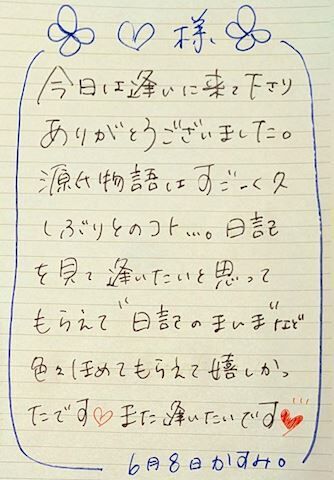 ♡様
今日は逢いに来て下さり
ありがとうございました。
源氏物語はすごーく久
しぶりとのコト…。日記
を見て逢いたいと思って
もらえて"日記のまんま"など
色々ほめてもらえて嬉しかっ
たです♡また逢いたいです♥
6月8日かすみ。